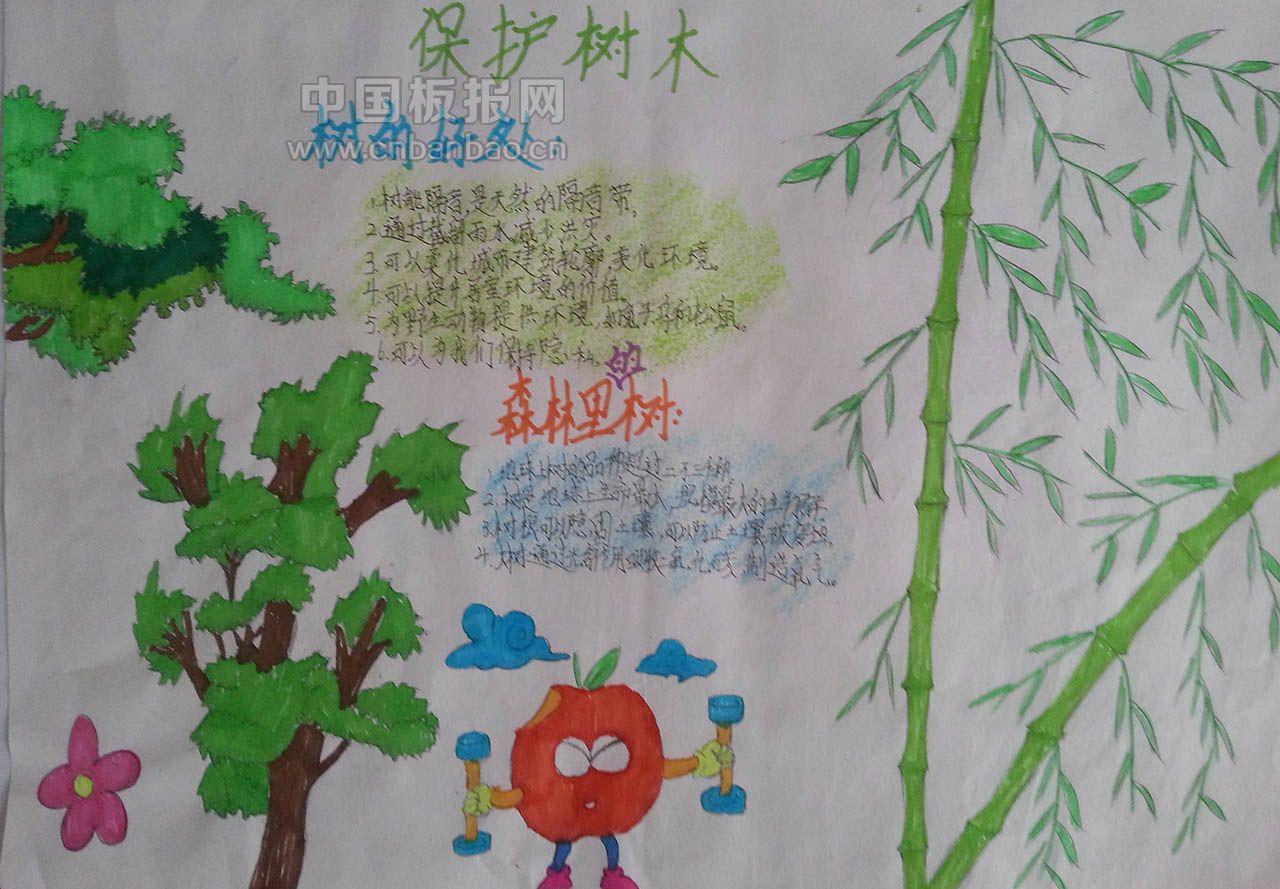 保护树木
中国板报网
树的好处:
www.cnbanbao.cn
1.树能隔音,是天然的隔音带。
2.通过截留雨水,减少洪灾。
3.可以柔化城市建筑轮廓,美化环境。
4.可以提升居室环境的价值。
5.为野生动物提供环境,如兔子和松鼠。
6.可以为我们保持隐私。
森林里的树:
1.地球上树的品种超过二万三千种
2.树是地球上寿命最长,规模最大的生物
3.树根可以稳固土壤,可以防止土壤被
4.树通过光合作用吸收二氧化碳,制造氧气。